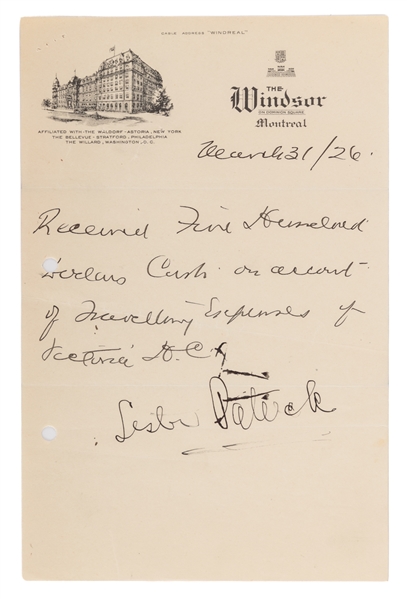 CABLE ADDRESS "WINDREAL"
THE
Windsor
ON DOMINION SQUARE
Montreal
AFFILIATED WITH - THE WALDORF - ASTORIA, NEW YORK
THE BELLEVUE - STRATFORD, PHILADELPHIA
THE WILLARD, WASHINGTON, D.C.
March 31/26.
Received Five Hundred
Dollars Cash on account
of Travelling Expenses of
Victoria H.C.
Lester Patrick